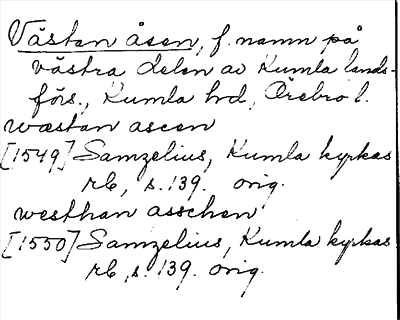 Västan åsen, f. namn på
västra delen av Kumla lands-
förs., Kumla hd, Örebro l.
wæstan aseen
[1549] Samzelius, Kumla kyrkas
rb, s. 139. orig.
westhan asschen
[1550] Samzelius, Kumla kyrkas
rb, s. 139. orig.